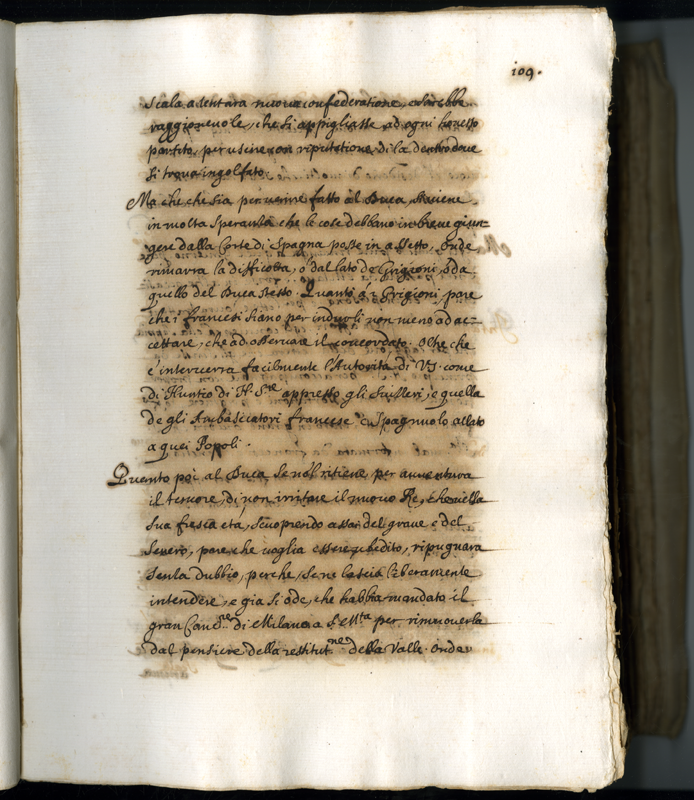 109.
scala a tentara nuova confederatione, e sarebbe
raggionevole, che si appigliasse ad ogni honesto
partito, per uscire con riputatione di là dentro dove
si trova ingolfato.
Ma che che sia per venire fatto al Duca,
in molta speranza che le cose debbano in breve giun=
gere dalla Corte di Spagna poste in assetto, onde
rimarrà la difficoltà, o dal lato de Grigioni, o da
quello del Duca stesso. Quanto à Grigioni pare
che i francesi siano per indurli non meno ad ac=
cettare, che ad osservare il concordato. Oltre che
è intercerrà facilmente l'Autorità di V.S. come
di Nuntio di N. S.re appresso gli Suizzeri, e quella
de gli Ambasciatori francese e Spagnuolo allato
a quei Popoli.
Quanto poi al Duca se no'l ritiene per avventura
il temore, di non irritare il nuovo Re, che nella
sua fresca età, scuoprendo assai del grave e del
severo, pare che voglia essere ubedito, ripugnarà
senza dubbio, perche, se ne lascia liberamente
intendere, e già si ode, che habbia mandato il
gran Canc.re di Milano a S. M.ta per rimuoverla
dal pensiere della restitut.ne della Valle. Onde